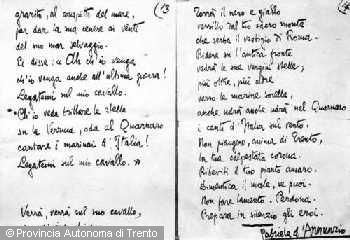 (13
apristo, al cospetto del mare,
per dar la mia cenere ai venti
del mio mar selvaggio.
Le disse: « Oh ch'io venga,
ch'io venga anche all'ultima guerra!
Legatemi sul mio cavallo.
Ch'io veda brillare le stelle
su la Verruca, oda al Quarnaro
cantare i marinai d'Italia!
Legatemi sul mio cavallo. »
Verrà, verrà sul suo cavallo,
Verrà il nero e giallo
vessillo dal tuo sacro monte
che serba il vestigio di Roma.
Ridere su l'antica fronte
vedrà le sue vergini stelle;
più oltre, più oltre
verso le marine sorelle,
anche udrà anche udrà nel Quarnaro
i canti d'Italia sul vento.
Non piangere, anima di Trento,
la tua calpestata corona.
Ribeviti il tuo pianto amaro.
Dimentica il male, se puoi.
Non fare lamento. Perdona.
Prepara in silenzio gli eroi.
Gabriele d'Annunzio
© Provincia Autonoma di Trento